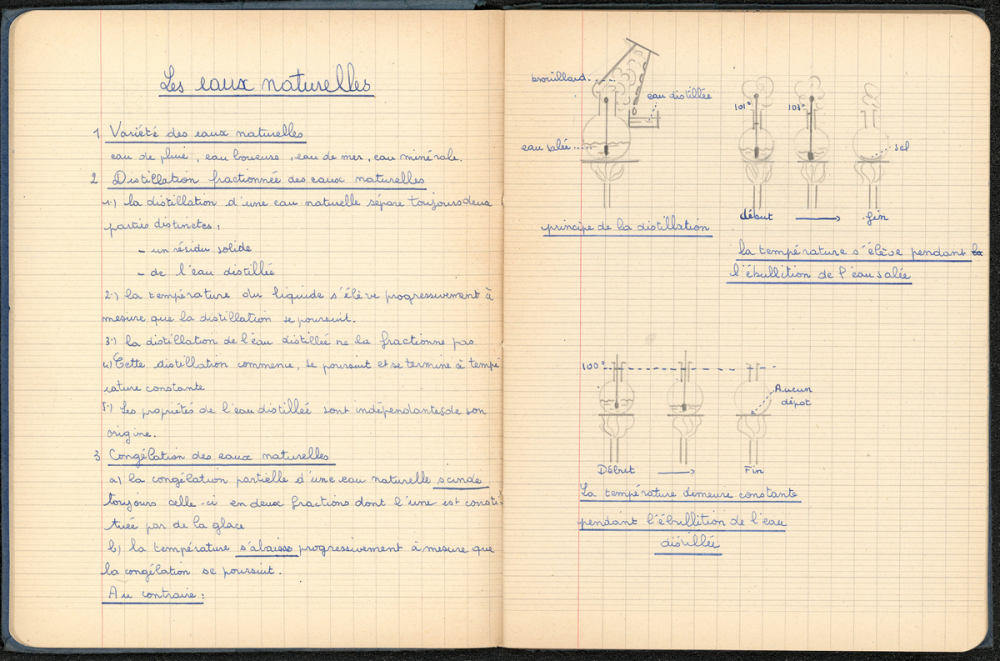 Les eaux naturelles
1 Variété des eaux naturelles
eau de pluie, eau boueuse, eau de mer, eau minérale.
2 Distillation fractionnée des eaux naturelles
1-) la distillation d'une eau naturelle sépare toujours deux
parties distinctes :
- un résidu solide
- de l'eau distillée
2-) la température du liquide s'élève progressivement à
mesure que la distillation se poursuit.
3-) la distillation de l'eau distillée ne la fractionne pas
4-) Cette distillation commence, se poursuit et se termine à tempé
rature constante
5-) Les propriétés de l'eau distillée sont indépendantes de son
origine.
3 Congélation des eaux naturelles
a) la congélation partielle d'une eau naturelle scinde
toujours celle-ci en deux fractions dont l'une est consti
tuée par de la glace
b) la température s'abaisse progressivement à mesure que
la congélation se poursuit.
Au contraire :
brouillard
eau distillée
eau salée
principe de la distillation
101°
103°
sel
début
fin
la température s'élève pendant la
l'ébullition de l'eau salée
100°
Aucun
dépot
Début
Fin
La température demeure constante
pendant l'ébullition de l'eau
distillée